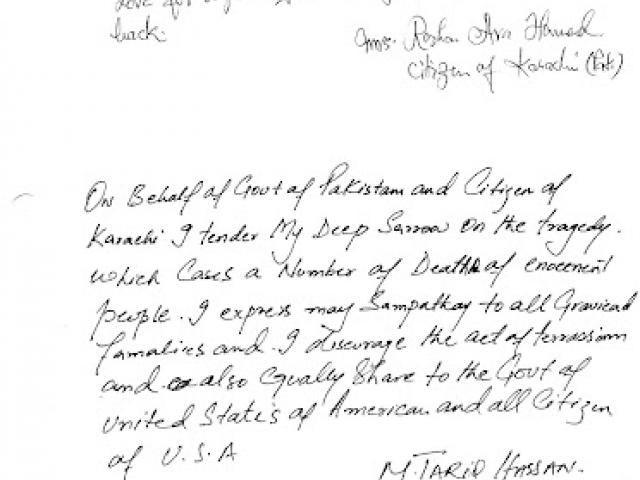 love for
back.
Mrs. Roshan Ara Hameed
Citizen of Karachi (Pak.)
On Behalf of Govt of Pakistan and Citizen of
Karachi I tender My Deep Sarrow on the tragedy.
which Cases a Number of Deaths of enocennt
people. I express may Sampathay to all Gravicad
Famalies and I discurage the act of terrassiom
and also Equally Share to the Govt of
United States of American and all Citizen
of U.S.A
M. TARIQ HASSAN.